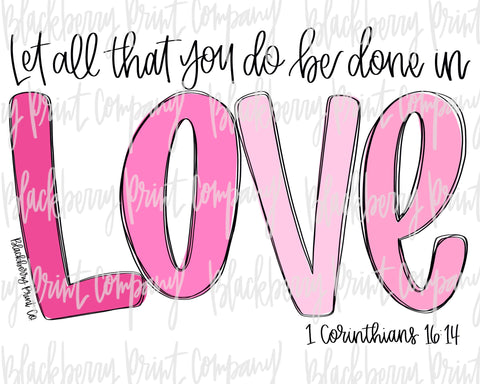 Let all that you do be done in
LOVe
Blackberry Print Co
1 Corinthians 16:14
Blackberry Print Company